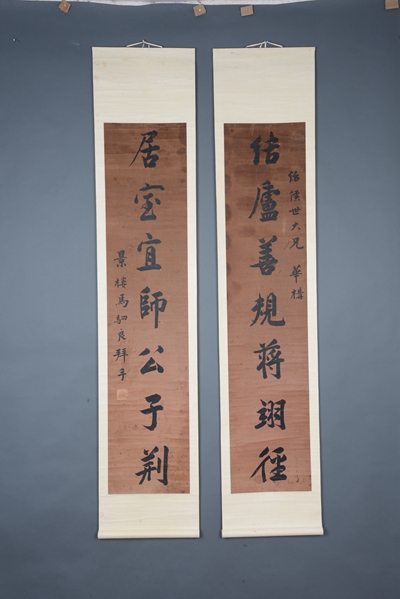 結廬善規蔣翊徑
世大兄 華構
居室宜師公子荊
景樓馬 良拜手